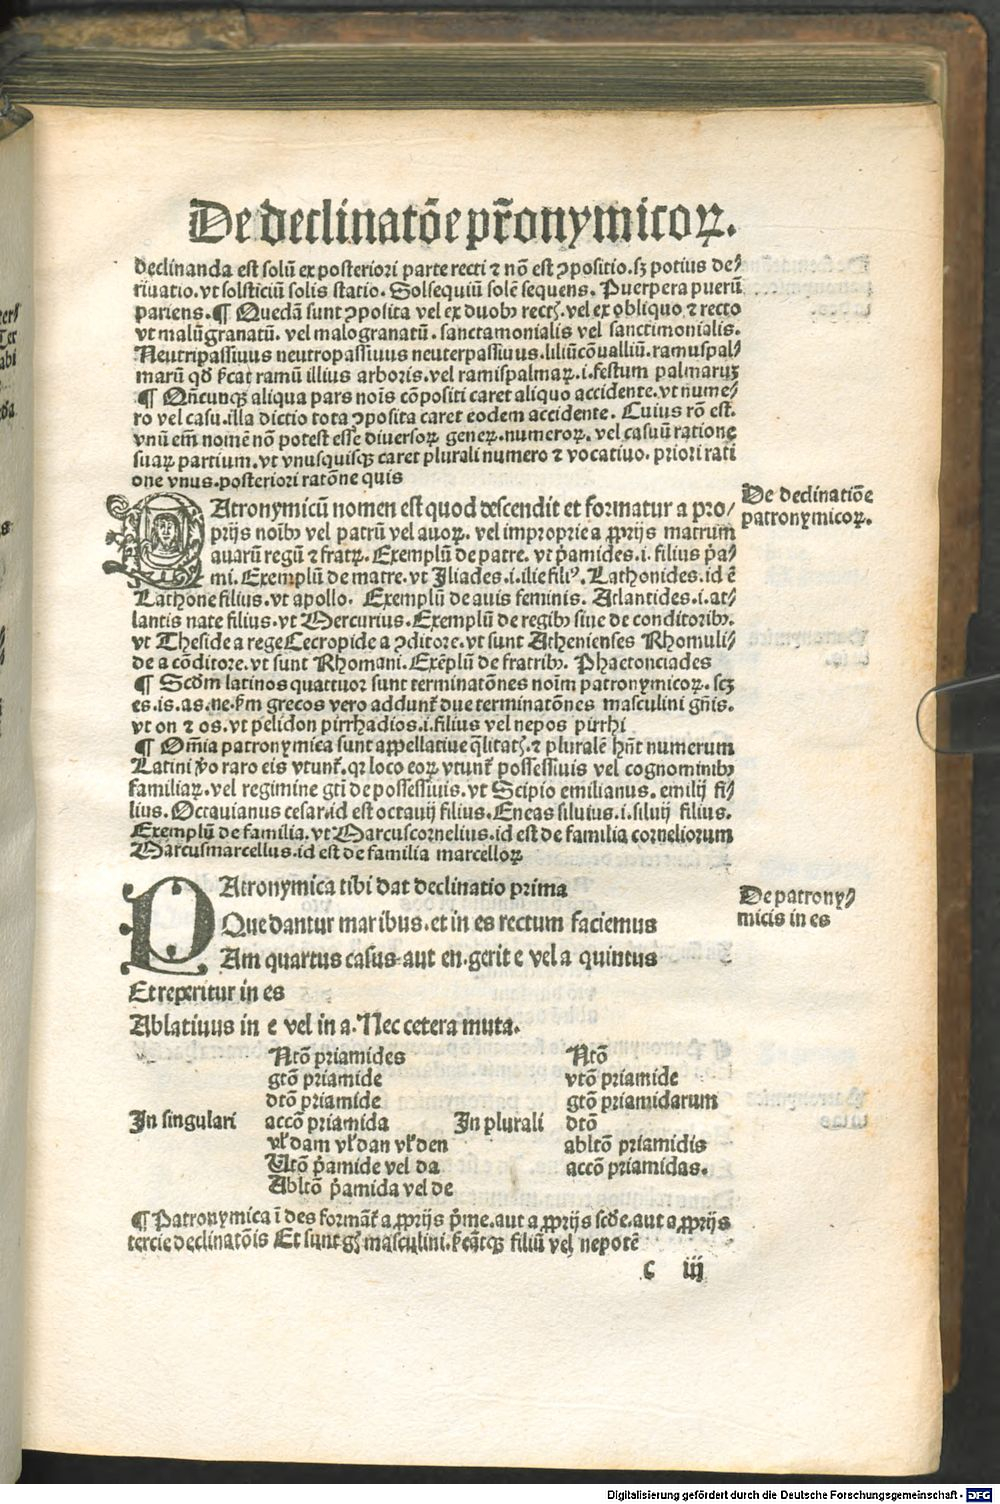 De declinatōe pr̄onymicoꝝ.
declinanda est solū ex posteriori parte recti ⁊ nō est ꝯpositio.sꝫ potius de⸗
riuatio.vt solsticiū solis statio. Solsequiū solē sequens. Puerpera puerū
pariens.¶ Quedā sunt ꝯposita vel ex duobꝰ rectꝭ.vel ex obliquo ⁊ recto
vt malūgranatū. vel malogranatū. sanctamonialis vel sanctimonialis.
Neutripassiuus neutropassiuus neuterpassiuus.liliūcōualliū.ramuspal⸗
marū qd̄ ſcat ramū illius arboris.vel ramispalmaꝝ.i.festum palmaruꝫ
¶ Qn̄cunqꝫ aliqua pars nois̄ cōpositi caret aliquo accidente.vt nume⸗
ro vel casu.illa dictio tota ꝯposita caret eodem accidente. Cuius rō est.
vnū em̄ nomē nō potest esse diuersoꝝ geneꝝ.numeroꝝ. vel casuū ratione
suaꝝ partium.vt vnusquisqꝫ caret plurali numero ⁊ vocatiuo. priori rati
one vnus.posteriori ratōne quis
PAtronymicū nomen est quod descendit et formatur a pro/
prijs noībꝫ vel patrū vel auoꝝ. vel improprie a ꝓprijs matrum
auarū regū ⁊ fratꝝ. Exemplū de patre. vt p̄amides.i. filius p̄a⸗
mi. Exemplū de matre.vt Iliades.i.ilie filiꝰ. Lathonides.id ē
Lathone filius.vt apollo. Exemplū de auis feminis. Atlantides.i.at⸗
lantis nate filius.vt Mercurius.Exemplū de regibꝫ siue de conditoribꝫ.
vt Theside a rege Cecropide a ꝯditore.vt sunt Athenienses Rhomuli⸗
de a cōditore.vt sunt Rhomani. Exēplū de fratribꝫ. Phaetonciades
¶ Scd̄m latinos quattuor sunt terminatōnes noīm patronymicoꝝ.scꝫ
es.is.as.ne.ſm grecos vero addunt᷑ due terminatōnes masculini gn̄is.
vt on ⁊ os.vt pelidon pirrhadios.i.filius vel nepos pirrhi
¶ Om̄ia patronymica sunt appellatiue q̄litatꝭ.⁊ pluralē hn̄t numerum
Latini v̄o raro eis vtunt᷑.qꝛ loco eoꝝ vtunt᷑ possessiuis vel cognominibꝫ
familiaꝝ.vel regimine gti̇ de possessiuis.vt Scipio emilianus. emilij fi⸗
lius.Octauianus cesar.id est octauij filius.Eneas siluius.i.siluij filius.
Exemplū de familia.vt Marcuscornelius.id est de familia corneliorum
Marcusmarcellus.id est de familia marcelloꝝ
De declinatiōe
patronymicoꝝ.
PAtronymica tibi dat declinatio prima
Que dantur maribus.et in es rectum faciemus
Am quartus casus aut en.gerit e vel a quintus
Et reperitur in es
Ablatiuus in e vel in a.Nec cetera muta.
De patrony⸗
micis in es
Ntō priamides Ntō
gtō priamide vtō priamide
dtō priamide gtō priamidarum
In singulari accō priamida In plurali dtō
vl̓ dam vl̓ dan vl̓ den abltō priamidis
Utō p̄amide vel da accō priamidas.
Abltō p̄amida vel de
¶ Patronymica ī des formāt᷑ a ꝓprijs p̄me.aut a ꝓprijs scd̄e.aut a ꝓprijs
tercie declinatōis Et sunt gn̄ꝭ masculini.ſcātqꝫ filiū vel nepotē
c iij
Digitalisierung gefördert durch die Deutsche Forschungsgemeinschaft - DFG